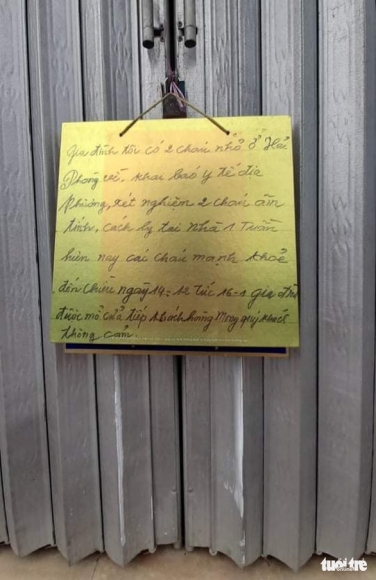 Gia đình tôi có 2 cháu nhỏ ở Hải
Phòng về, khai báo y tế địa
phương, xét nghiệm 2 cháu âm
tính, cách ly tại nhà 1 Tuần
hiện nay các cháu mạnh khỏe
đến chiều ngày 19-12 tức 16-1 gia đình
được mở cửa tiếp khách hàng Mong quý khách
thông cảm.
tuổi trẻ